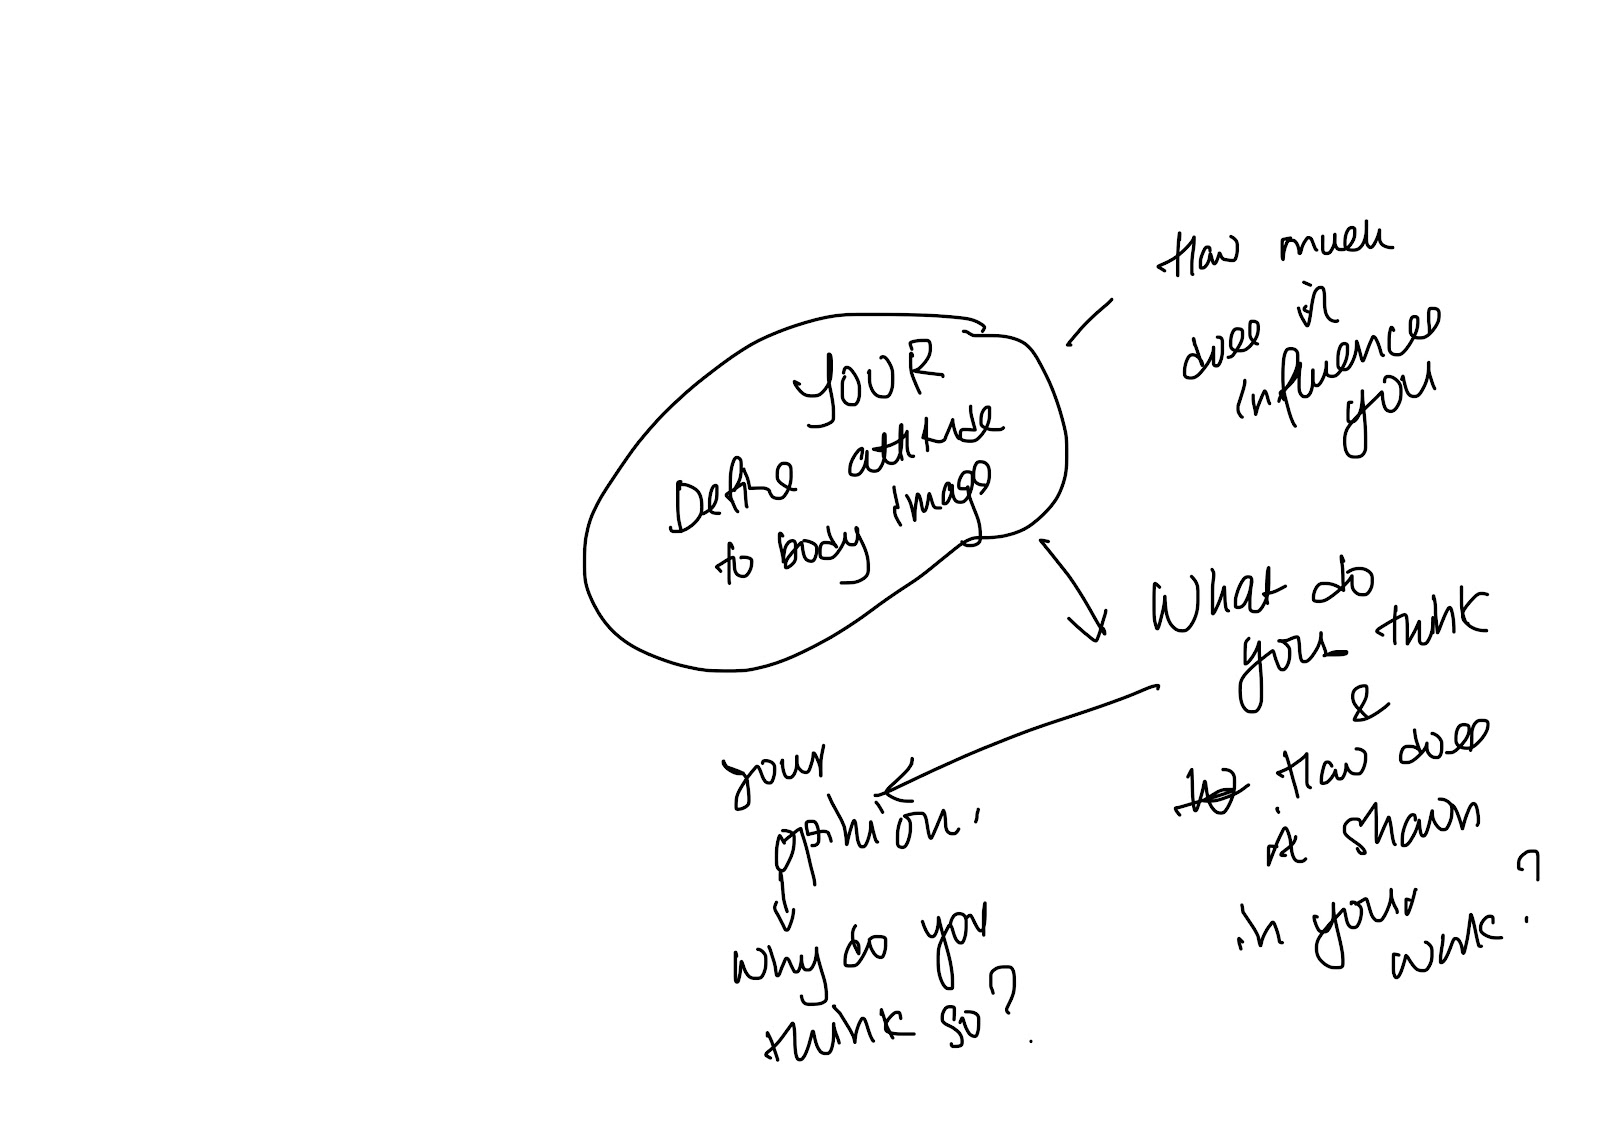 YOUR
Define attitude
to body image
How much
does it
influences
you
What do
you think
&
How does
it shown
in your
work?
your
opinion.
Why do you
think so?